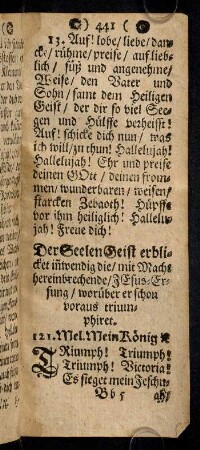 ) 441 (
13. Auf! lobe/ liebe/ dan-
cke/ rühme/ preise/ auf lieb-
lich/ süß und angenehme/
Weise/ den Vater und
Sohn/ samt dem Heiligen
Geist/ der dir so viel See-
gen und Hülffe verheisst!
Auf! schicke dich nun/ was
ich will/ zu thun! Hallelujah!
Hallelujah! Ehr und preise
deinen GOtt/ deinen from-
men/ wunderbaren/ weisen/
starcken Zebaoth! Hüpffe
vor ihm heiliglich! Hallelu-
jah! Freue dich!
Der Seelen Geist erbli-
cket inwendig die/ mit Macht
hereinbrechende/ JEsus-Er-
sung/ worüber er schon
voraus trium-
phiret.
121. Mel. Mein König
TRiumph! Triumph!
Triumph! Victoria!
Es sieget mein Jeschu-
Bb 5 ah/